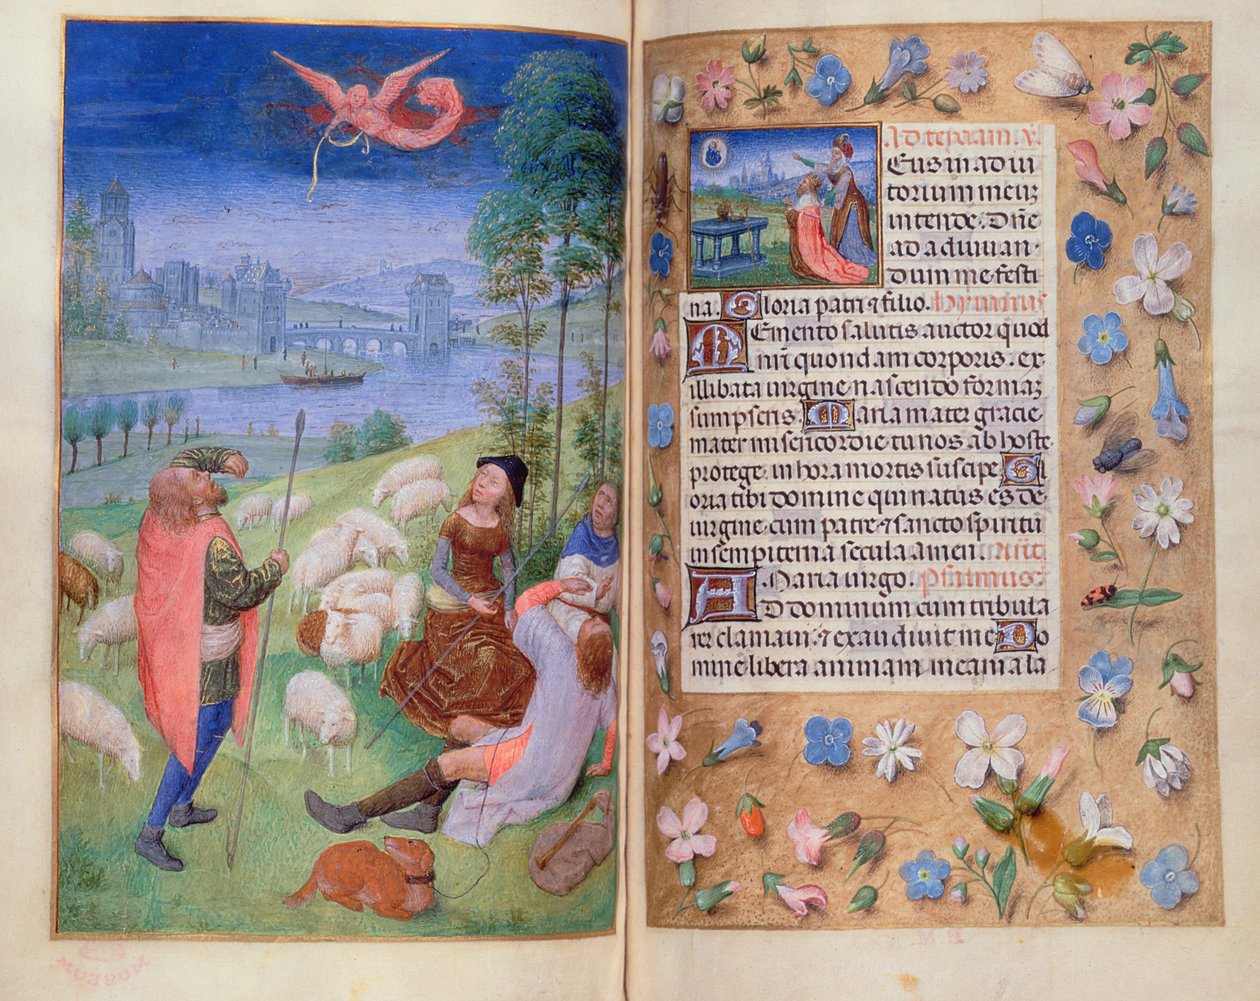 Ad terciam ℣
Eus in adiu
torium meuz
intende. Dne
ad adiuuan
dum me festi
na. Gloria patri & filio. Hymnus
Memento salutis auctor quod
nri quondam corporis. ex
illibata uirgine nascendo formaz
sumpseris. Maria mater gracie
mater misericordie tu nos ab hoste
protege. in hora mortis suscipe.
Gloria tibi domine qui natus es de
uirgine. cum patre & sancto spiritu
in sempiterna secula. amen.
A. Maria uirgo. Psalmus
Ad dominum cum tribula
rer clamaui. & exaudiuit me. Do
mine libera animam meam a la
MUSEUM